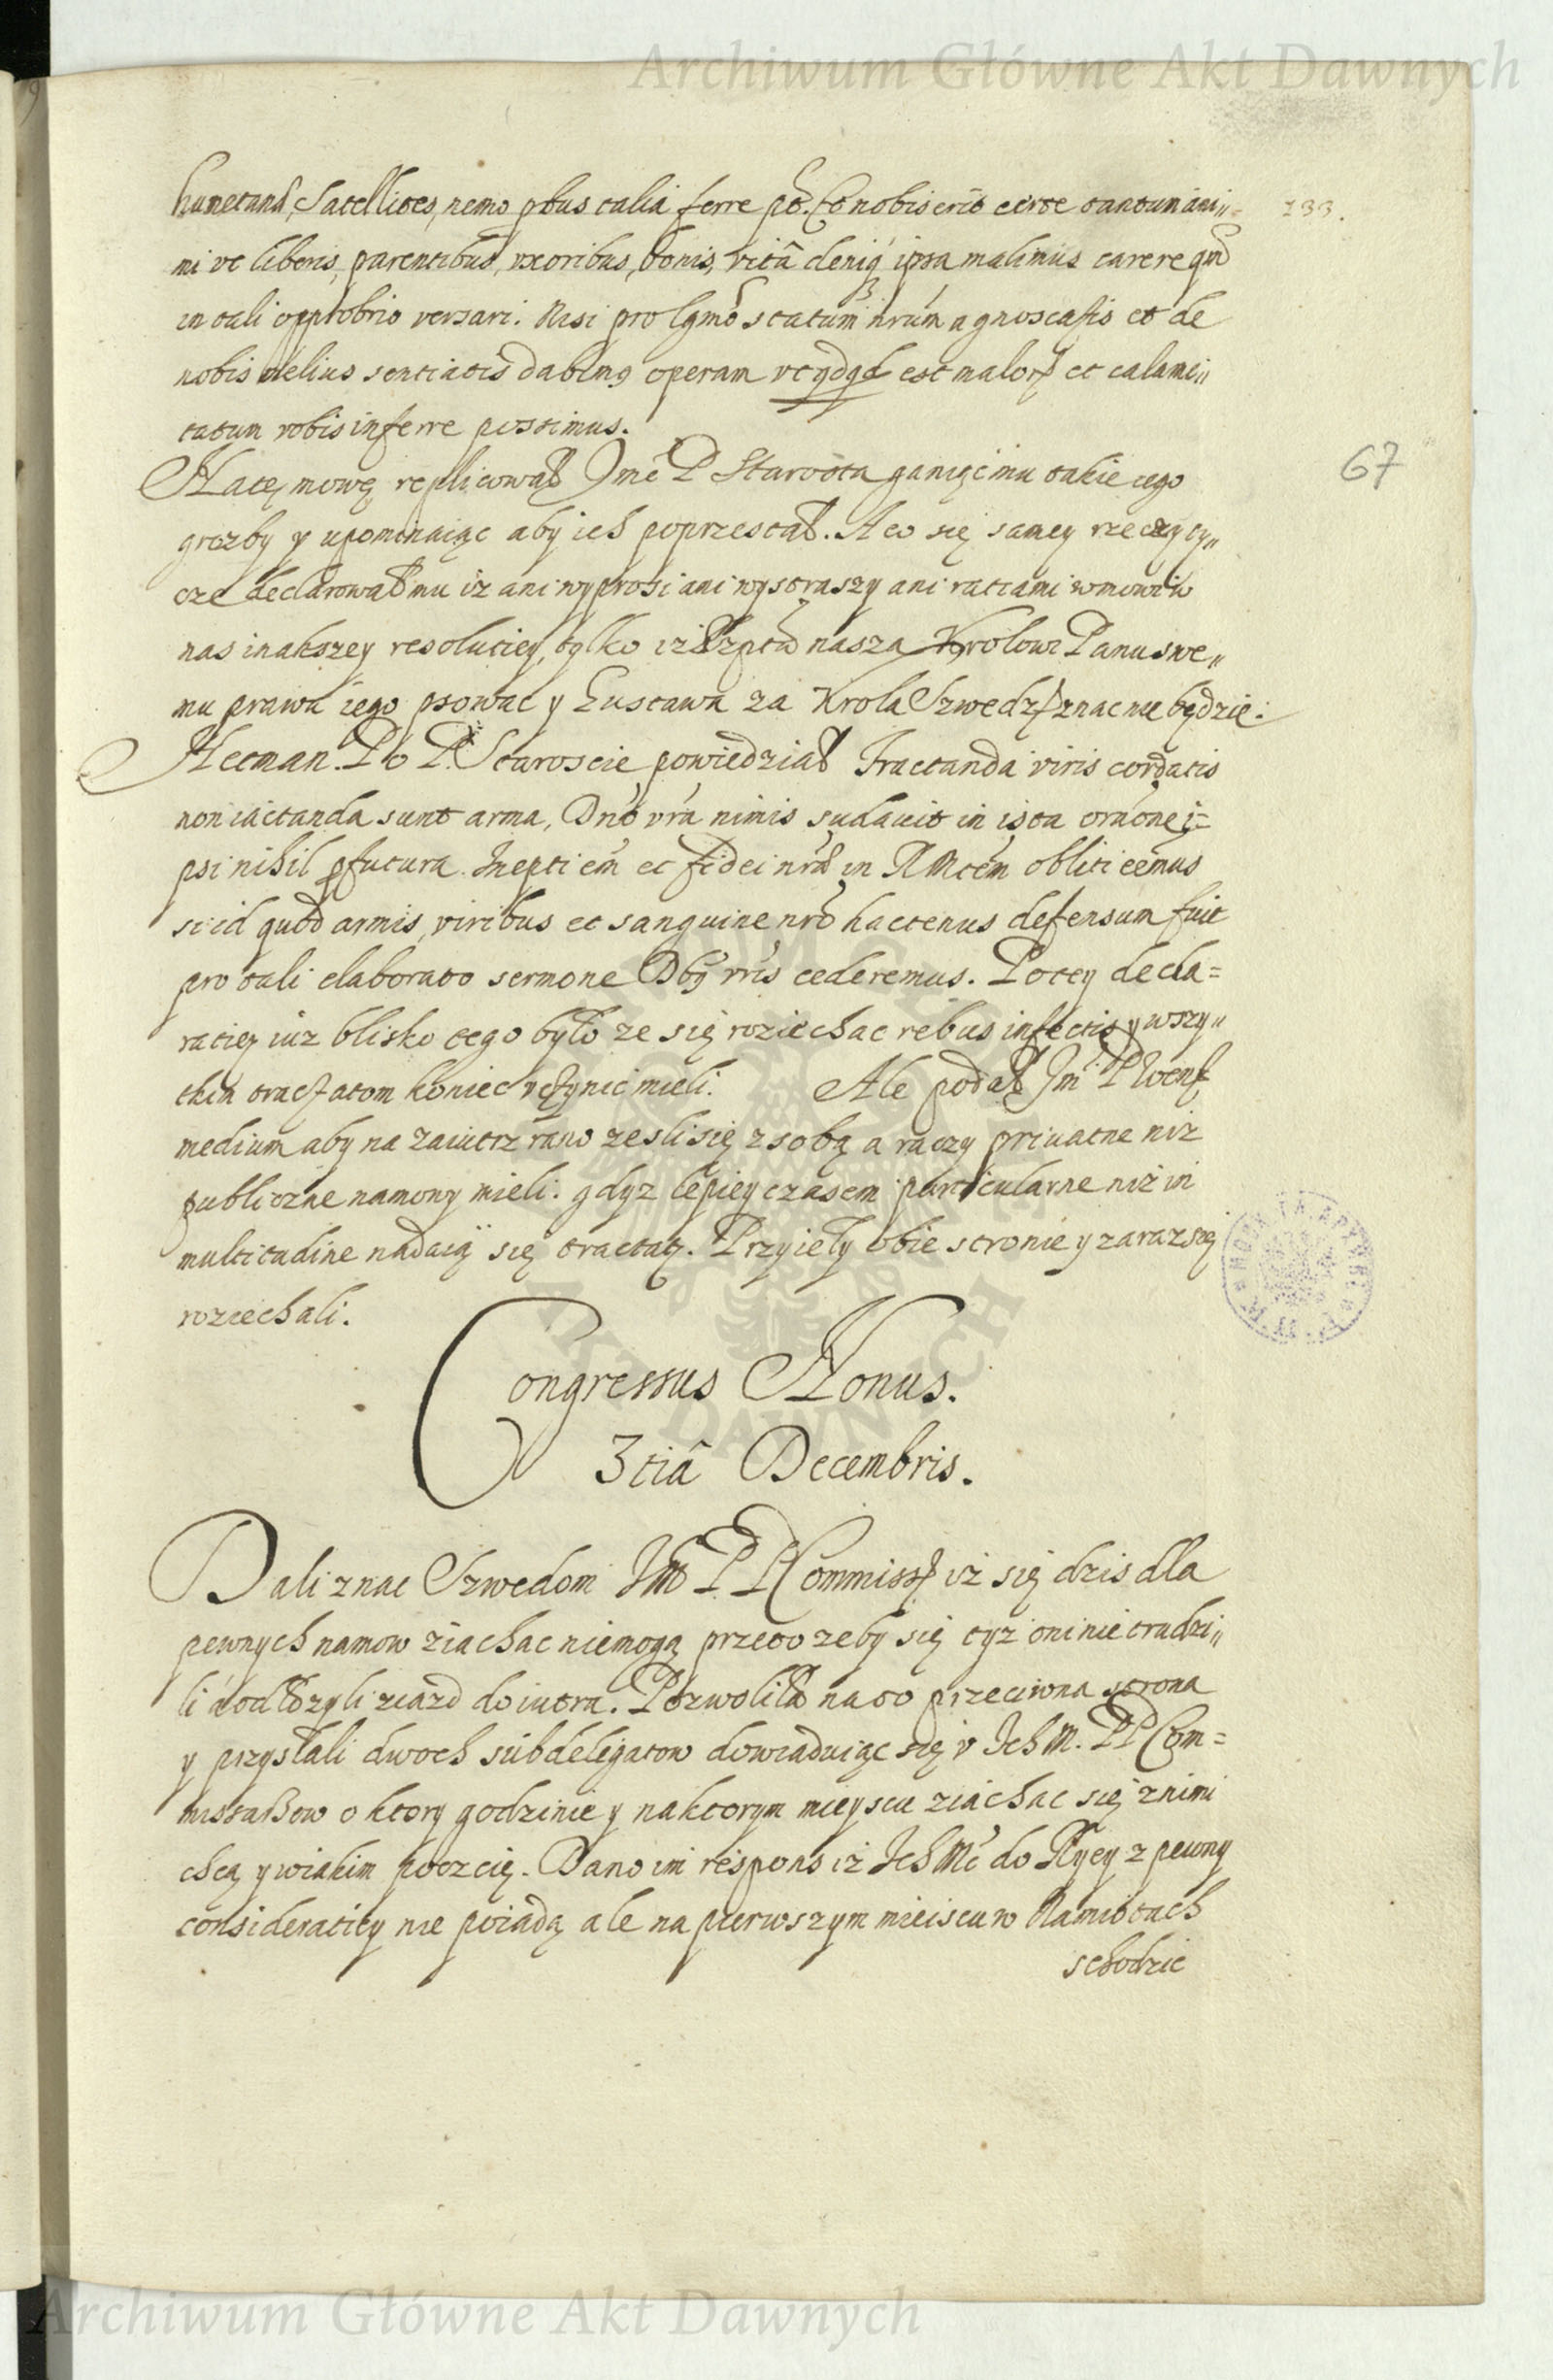 Archiwum Główne Akt Dawnych
hunc tand, Satellites, nemo pbus talia ferre pt. Et nobis erit certe tantum ani„
133.
mi vt liberis, parentibus, vxoribus, bonis, vitâ deniq ipsa malimus carere qm
in tali opprobrio versari. Nisi pro lgmo statum nrum agnoscatis et de
nobis melius sentiatis dabimq operam vt qdqd est malor et calami„
tatum vobis inferre possimus.
Na tę mowę replicował Jme P Starosta ganiąc mu takie iego
67
grozby y upominaiąc aby ich poprzestał. A co się samey rzeczy ty„
cze declarował mu iz ani wyprosi ani wystraszy ani ratiami wmowi w
nas inakszey resolutiey, tylko iz Rzpta nasza Krolowi Panu swe„
mu prawa iego psowac y Gustawa za Krola Szwedz znac nie będzie.
Hetman. Po P. Staroscie powiedział Tractanda viris cordatis
non iactanda sunt arma, Dnō vra nimis sudauit in ista orāone i=
psi nihil pfutura. Inepti em et fidei nra in RMtem obliti eemus
si id quod armis, viribus et sanguine nro hactenus defensum fuit
pro tali elaborato sermone Dby vris cederemus. Po tey decla=
ratiey iuz blisko tego było ze się roziechac rebus infectis y wszy„
tkim tractatom koniec vczynic mieli. Ale podał Jm P Wend
medium aby na zaiutrz rano zesli się z sobą a raczy priuatne niz
publiczne namowy mieli. gdyz lepiey czasem particularne niz in
multitudine nadaią się tractaty. Przyieły obie stronie y zaraz się
roziechali.
Congressus Nonus.
3tiâ Decembris.
Dali znac Szwedom Jm PP Commiss iz się dzis dla
pewnych namow ziachac niemogą przeto zeby się tyz oni nie trudzi„
li a odłozyli ziazd do iutra. Pozwoliła na to przeciwna strona
y przysłali dwoch subdelegatow dowiaduiąc się v Ich M. PP Com=
missarzow o ktory godzinie y na ktorym mieyscu ziachac się z nimi
chcą y w iakim poczcie. Dano im respons iz Ich Mc do Ryey z pewny
consideratiey nie poiadą ale na pierwszym mieiscu w Namiotach
schodzic
Archiwum Główne Akt Dawnych